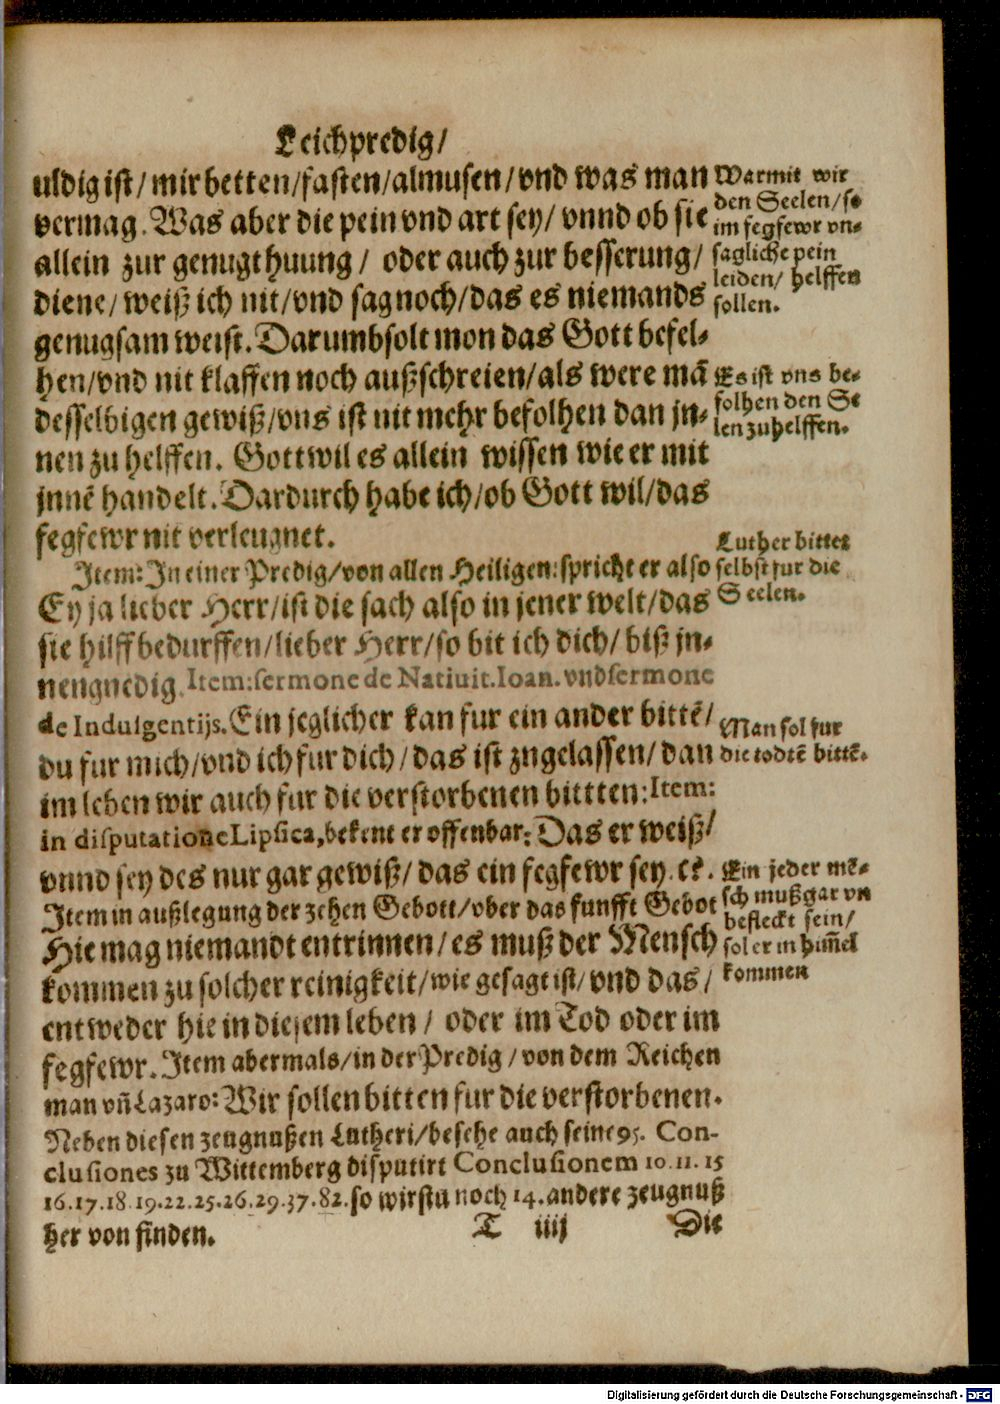 Leichpredig/
uldig ist/ mir betten/fasten/almusen/vnd was man
vermag. Was aber die pein vnd art sey/ vnnd ob sie
allein zur genugthuung / oder auch zur besserung/
diene/ weiß ich nit/vnd sag noch/das es niemands
genugsam weist. Darumb solt mon das Gott befel-
hen/vnd nit klaffen noch außschreien/als were mã
desselbigen gewiß/vns ist nit mehr befolhen dan jn-
nen zu helffen. Gott wil es allein wissen wie er mit
jnnẽ handelt. Dardurch habe ich/ob Gott wil/das
fegfewr nit verleugnet.
Item: In einer Predig/von allen Heiligen: spricht er also
Ey ja lieber Herr/ist die sach also in jener welt/das
sie hilff bedurffen/lieber Herr/so bit ich dich/ biß jn-
nen gnedig. Item: sermone de Natiuit. Ioan. vnd sermone
de Indulgentijs. Ein jeglicher kan fur ein ander bittẽ/
du fur mich/vnd ich fur dich/ das ist zugelassen/ dan
im leben wir auch fur die verstorbenen bittten: Item:
in disputatione Lipsica, bekent er offenbar: Das er weiß/
vnnd sey des nur gar gewiß/ das ein fegfewr sey. ꝛc.
Item in außlegung der zehen Gebott/vber das funfft Gebot
Hie mag niemandt entrinnen/ es muß der Mensch
kommen zu solcher reinigkeit/wie gesagt ist/ vnd das /
entweder hie in diesem leben / oder im Tod oder im
fegfewr. Item abermals/in der Predig / von dem Reichen
man vñ Lazaro: Wir sollen bitten fur die verstorbenen.
Neben diesen zeugnußen Lutheri/besehe auch seine 95. Con-
clusiones zu Wittemberg disputirt Conclusionem 10. 11. 15
16. 17. 18. 19. 22. 25. 26. 29. 37. 82. so wirstu noch 14. andere zeugnuß
her von finden.
T iiij
Die
Warmit wir
den Seelen/ so
im fegfewr vn-
sagliche pein
leiden/ helffen
sollen.
Es ist vns be-
folhen den Se
len zu helffen.
Luther bittet
selbst fur die
Seelen.
Man sol fur
die todtẽ bittẽ.
Ein jeder mẽ-
sch muß gar vn
befleckt sein/
sol er in him̃el
kommen
Digitalisierung gefördert durch die Deutsche Forschungsgemeinschaft - DFG